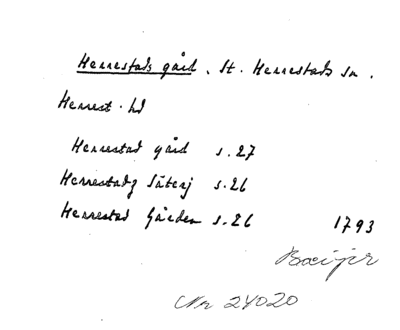 Herrestads gård. St. Herrestads sn.
Herrest. hd
Herrestad gård s. 27
Herrestadz Säterj s. 26
Herrestad Gården s. 26 1793
Boeijer
Nr 24020